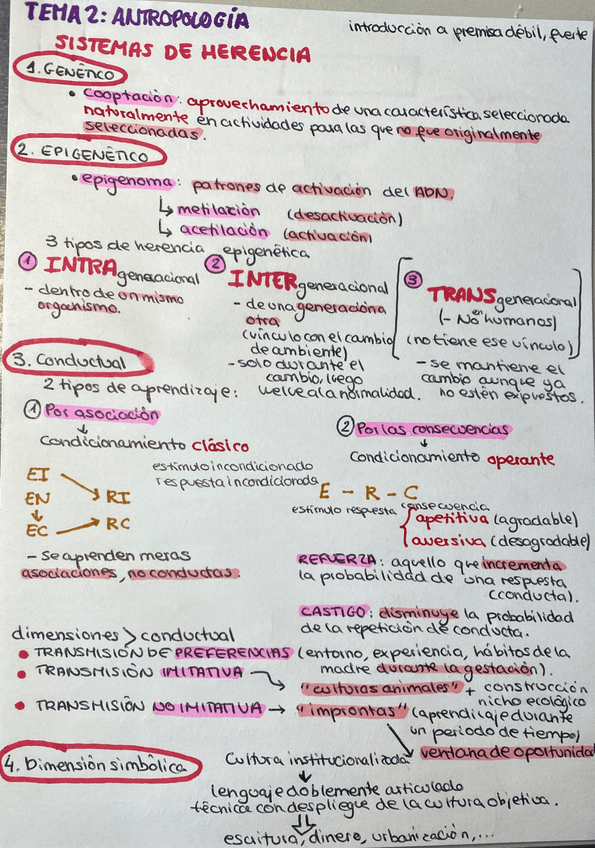 TEMA 2: ANTROPOLOGÍA
introducción a premisa débil, fuerte
SISTEMAS DE HERENCIA
1. GENÉTICO
• cooptación: aprovechamiento de una característica seleccionada
naturalmente en actividades para las que no fue originalmente
seleccionadas.
2. EPIGENÉTICO
• epigenoma: patrones de activación del ADN.
↳ metilación (desactivación)
↳ acetilación (activación)
3 tipos de herencia epigenética
① INTRAgeneracional
- dentro de un mismo
organismo.
② INTERgeneracional
- de una generación a
otra
(vínculo con el cambio
de ambiente)
- solo durante el
cambio, luego
vuelve a la normalidad.
③ TRANSgeneracional
(- No en humanos)
(no tiene ese vínculo)
- se mantiene el
cambio aunque ya
no estén expuestos.
3. Conductual
2 tipos de aprendizaje:
① Por asociación
↓
Condicionamiento clásico
estímulo incondicionado
respuesta incondicionada
EI → RI
EN
↓
EC → RC
- Se aprenden meras
asociaciones, no conductas.
② Por las consecuencias
↓
Condicionamiento operante
E - R - C
estímulo respuesta consecuencia
apetitiva (agradable)
aversiva (desagradable)
REFUERZA: aquello que incrementa
la probabilidad de una respuesta
(conducta).
CASTIGO: disminuye la probabilidad
de la repetición de conducta.
dimensiones > conductual
• TRANSMISIÓN DE PREFERENCIAS (entorno, experiencia, hábitos de la
madre durante la gestación).
• TRANSMISIÓN IMITATIVA → "culturas animales" + construcción
nicho ecológico
• TRANSMISIÓN NO IMITATIVA → "improntas" (aprendizaje durante
un periodo de tiempo)
ventana de oportunidad
4. Dimensión simbólica
Cultura institucionalizada
↓
lenguaje doblemente articulado
técnica con despliegue de la cultura objetiva.
⇓
escritura, dinero, urbanización,...